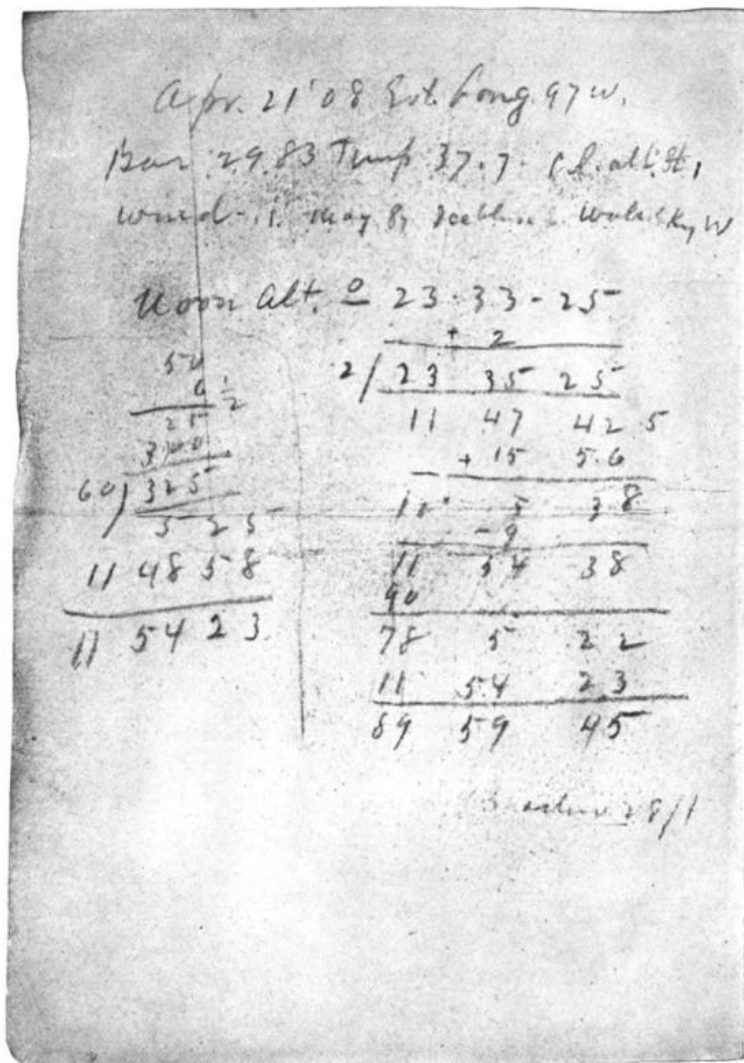 Apr. 21 '08 Est. Long. 97 W.
Bar 29.83 Temp 37.7
wind - 1. mag 8,
Noon Alt. ⊙ 23-33-25
+ 2
2 / 23 35 25
11 47 42 5
+ 15 56
3 38
- 9
11 54 38
90
78 5 22
11 54 23
89 59 45
50
6 1/2
25
300
60) 325
5 25
11 48 58
11 54 23
28 ft